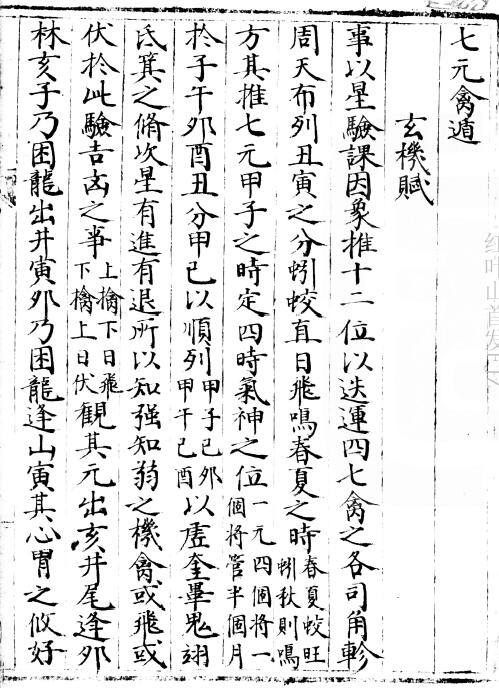 七元禽遁
玄機賦
事以星驗課因象推十二位以迭運四七禽之各司角軫
周天布列丑寅之分蚓蛟直日飛鳴春夏之時春夏蛟旺蚓秋則鳴
方其推七元甲子之時定四時氣神之位一元四個將一個將管半個月
於子午夘酉丑分甲己以順列甲子己夘甲午己酉以虛奎畢鬼翊
氐箕之脩次星有進有退所以知强知弱之機禽或飛或
伏於此驗吉凶之事上擒下日飛下擒上日伏觀其元出亥井尾逢夘
林亥子乃困龍出井寅夘乃困龍逢山寅其心胃之攸好